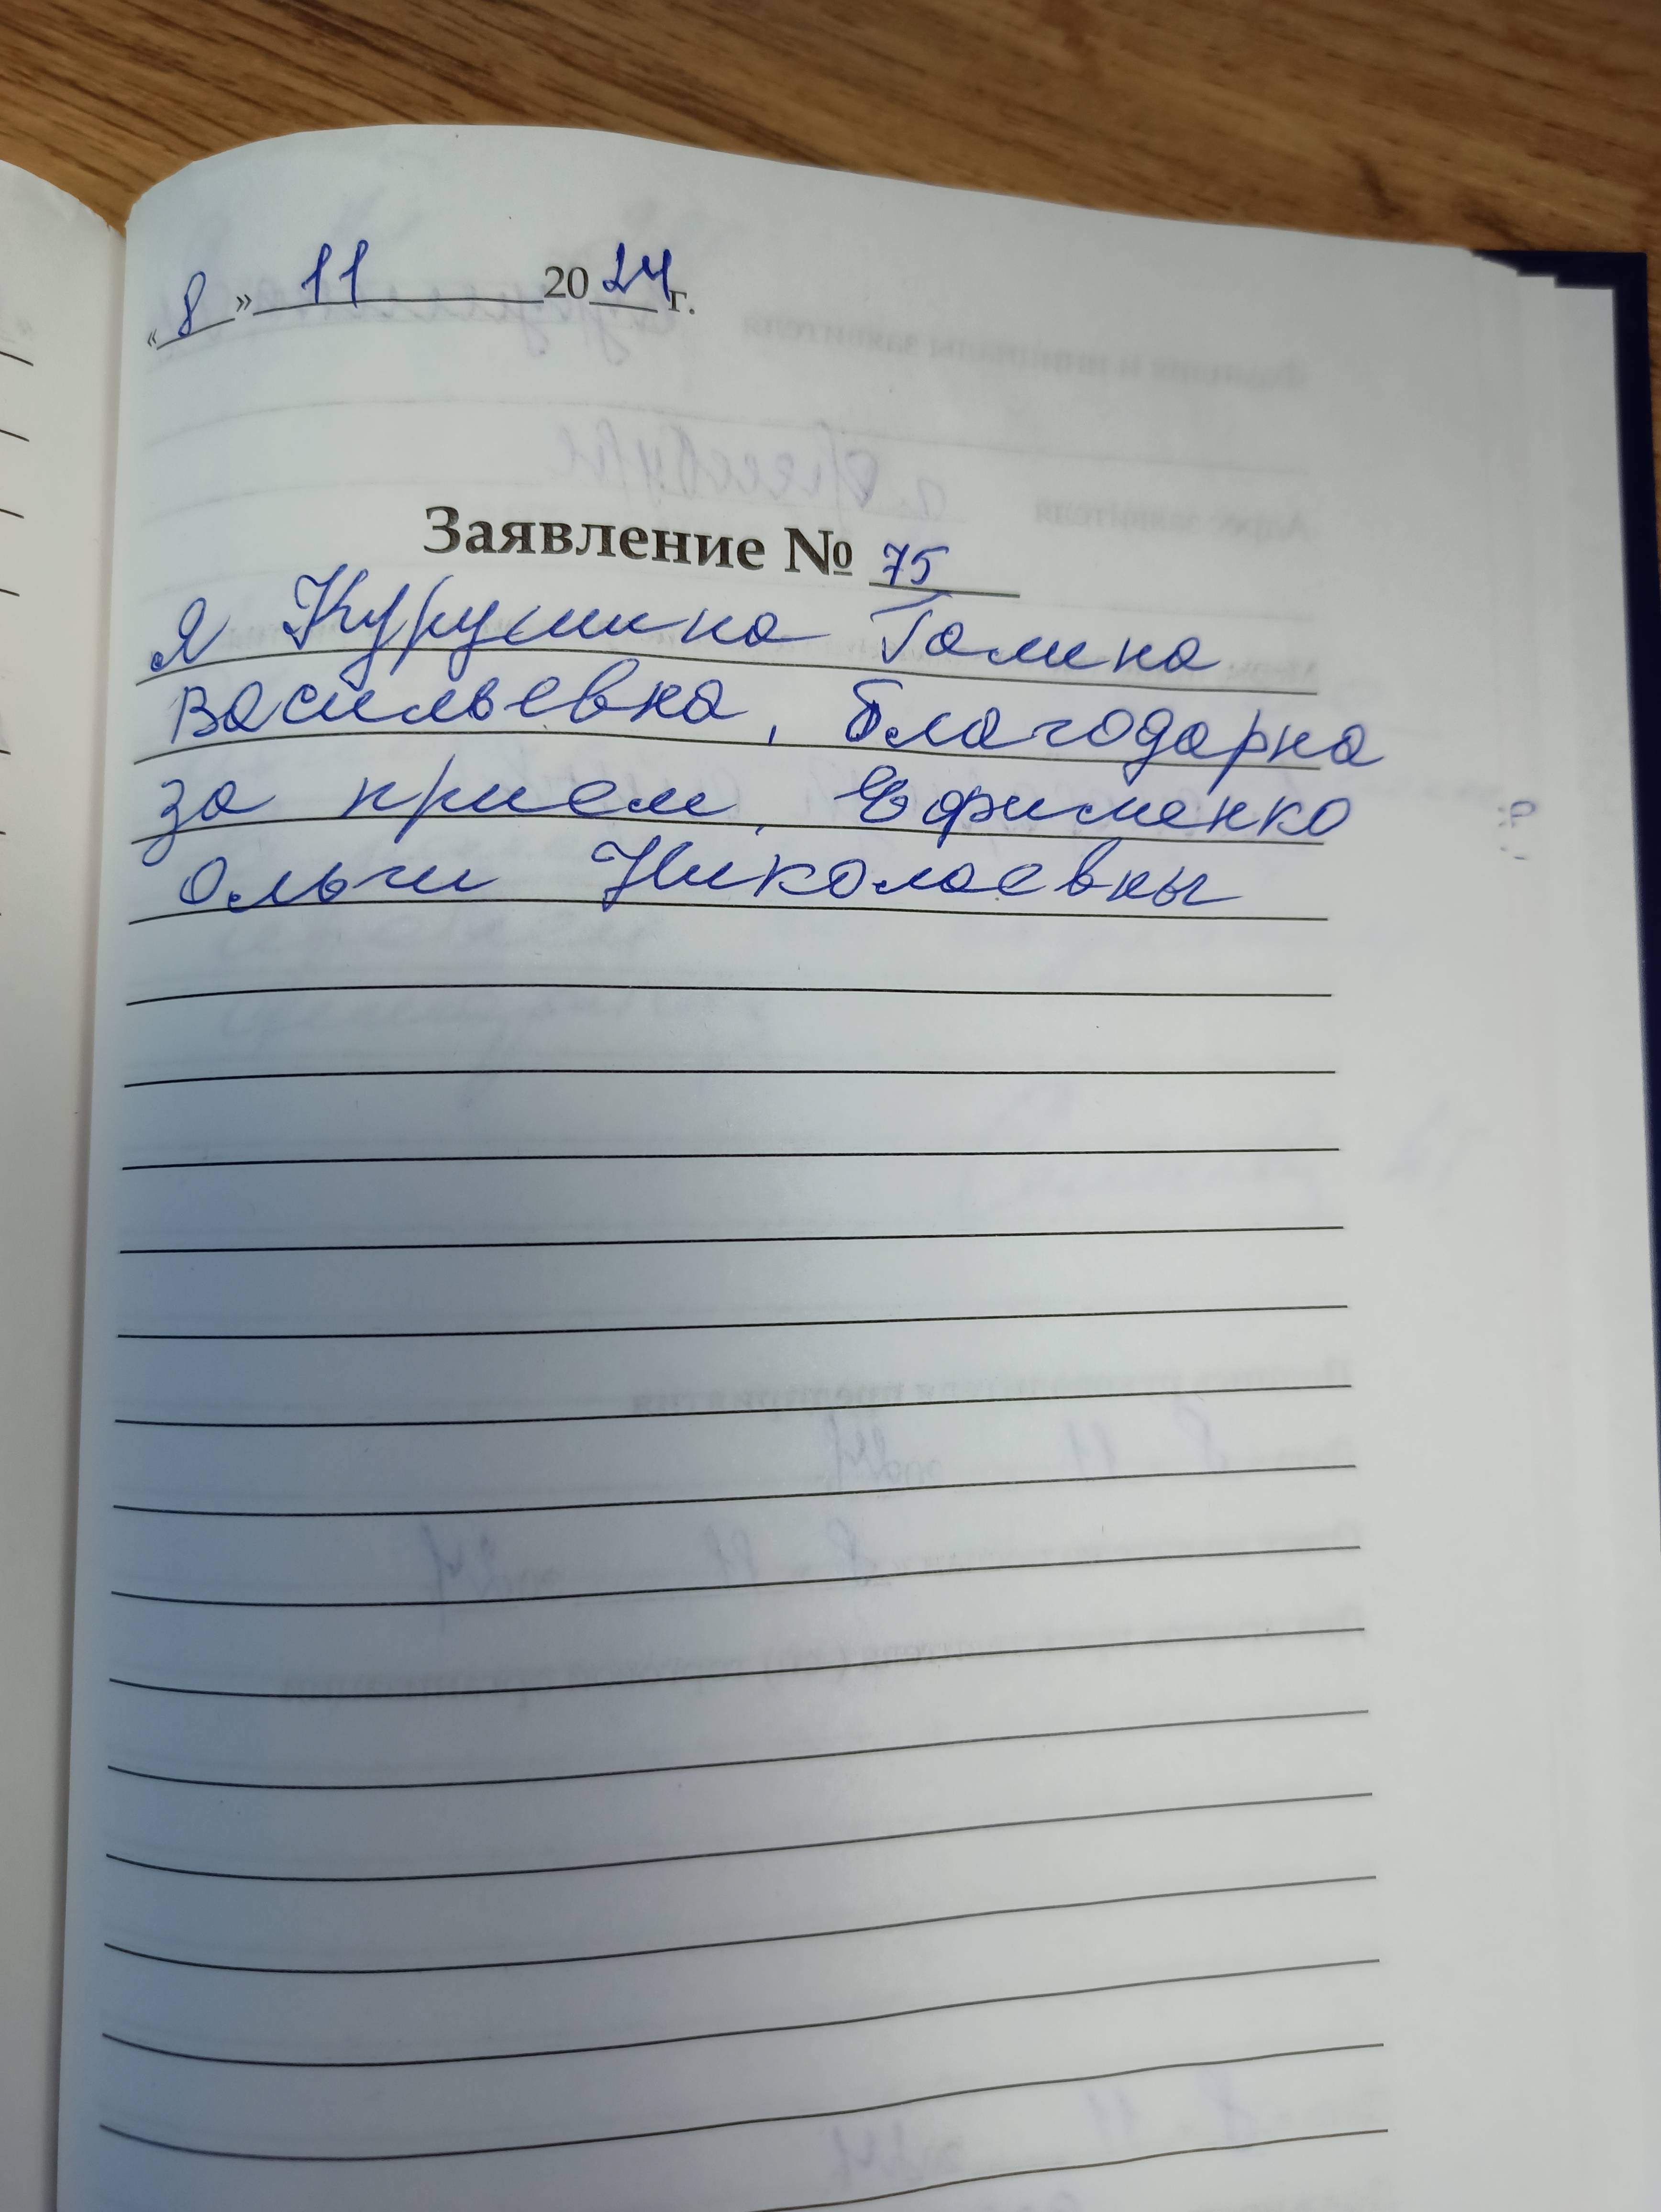 «8» 11 2024г.
Заявление № 75
Я Курушина Галина
Васильевна, благодарна
за прием, Ефименко
Ольги Николаевны